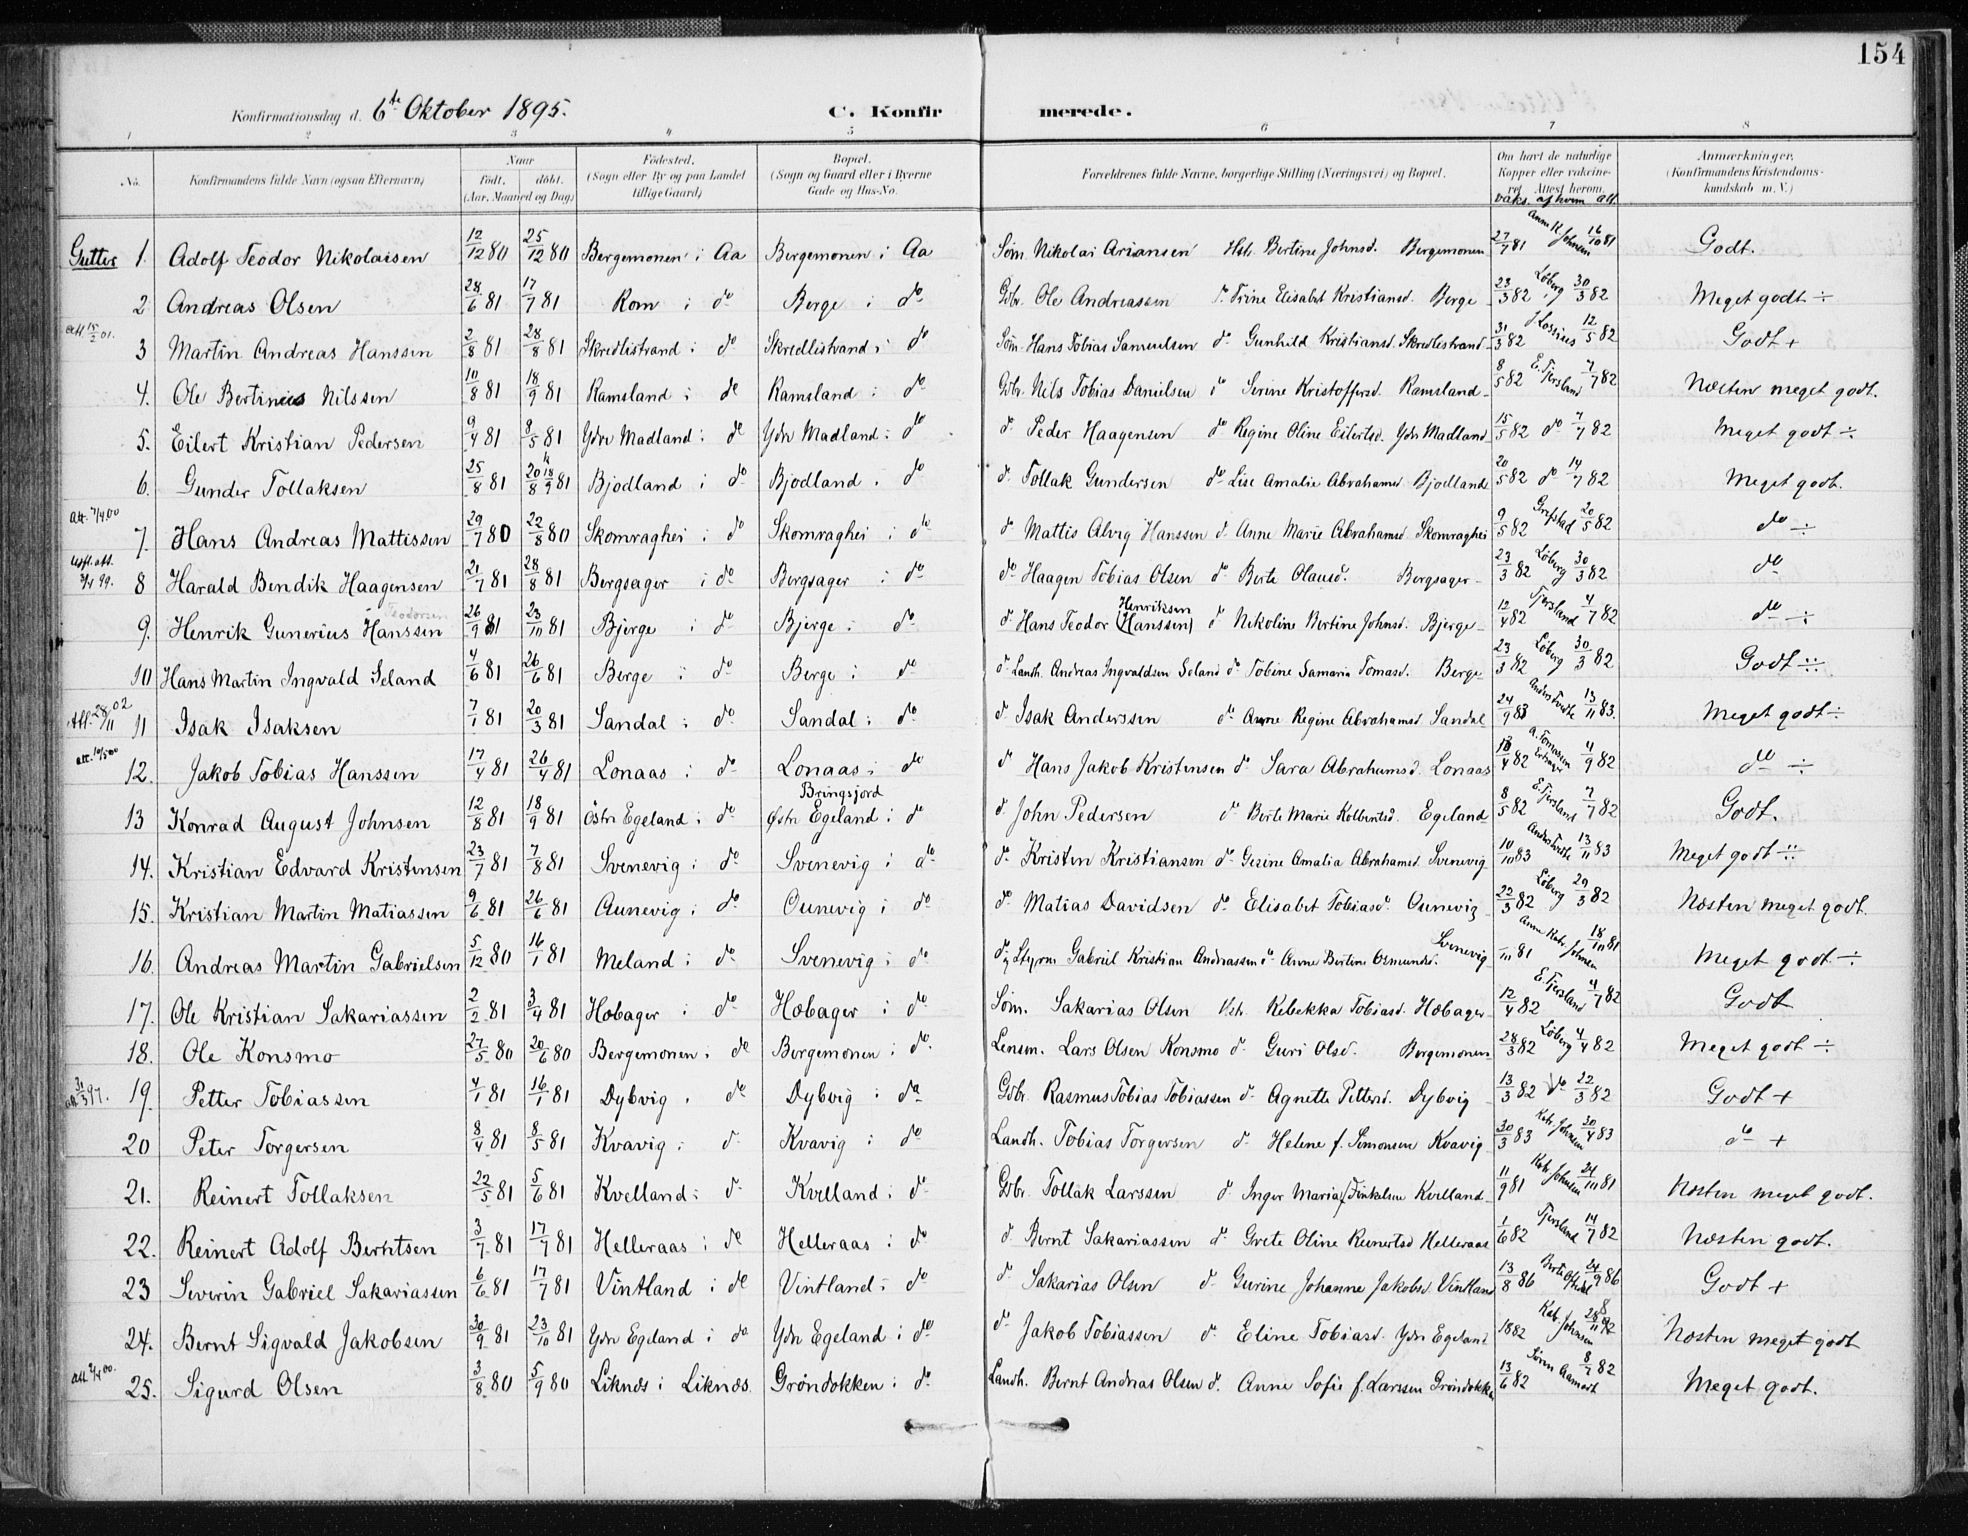 154
Konfirmationsdag d. 6te Oktober 1895. C. Konfirmerede.
1 2 3 4 5 6 7 8
No. Konfirmandens fulde Navn (ogsaa Efternavn) Naar Født, døbt. (Aar, Maaned og Dag) Fødested. (Sogn eller By og paa Landet tillige Gaard) Bopæl. (Sogn og Gaard eller i Byerne Gade og Hus-No. Forældrenes fulde Navne, borgerlige Stilling (Næringsvei) og Bopæl. Om havt de naturlige Kopper eller vakcineret. Attest herom. Anmærkninger, (Konfirmandens Kristendomskundskab m. V.)
vaks. af hvem att.
Gutter 1. Adolf Teodor Nikolaisen 12/12 80 25/12 80 Bergemonen i Aa Bergemonen i Aa Søm. Nikolai Ariansen Hstr. Bertine Johnsd. Bergemonen 27/7 81 Anna K Johnsen 16/10 81 Godt.
2 Andreas Olsen 28/6 81 17/7 81 Rom i do Berge i do Gbr. Ole Andreassen do Trine Elisabet Kristiansd. Berge 23/3 82 Löberg 30/3 82 Meget godt ÷
att 15/2 01. 3 Martin Andreas Hanssen 2/8 81 28/8 81 Skredlistrand i do Skredlistrand i do Søm. Hans Tobias Samuelsen do Gunhild Kristiansd. Skredlistrand 31/3 82 J Lossius 12/5 82 Godt +
4. Ole Bertinius Nilssen 10/8 81 18/9 81 Ramsland i do Ramsland i do Gdbr. Nils Tobias Danielsen do Serine Kristoffersd. Ramsland 8/5 82 E. Tjersland 7/7 82 Næsten meget godt.
5. Eilert Kristian Pedersen 9/4 81 8/5 81 Ydre Madland i do Ydre Madland i do do Peder Haagensen do Regine Oline Eilertsd. Ydre Madland 15/5 82 do 7/7 82 Meget godt ÷
6. Gunder Tollaksen 25/8 81 20/8 18/9 81 Bjodland i do Bjodland i do do Tollak Gundersen do Lise Amalie Abrahamsd Bjodland 20/5 82 do 14/7 82 Meget godt.
att. 7/4 00 7. Hans Andreas Mattissen 29/7 80 22/8 80 Skomraghei i do Skomraghei i do do Mattis Alvig Hanssen do Anne Marie Abrahamsd Skomraghei 9/5 82 Grefstad 20/5 82 do ÷
att. 3/4 99. 8 Harald Bendik Haagensen 21/7 81 28/8 81 Bergsager i do Bergsager i do do Haagen Tobias Olsen do Berte Olausd. Bergsager 23/3 82 Löberg 30/3 82 do
9. Henrik Gunerius Hanssen Teodorsen 26/9 81 23/10 81 Bjerge i do Bjerge i do do Hans Teodor Henriksen (Hanssen) do Nikoline Bertine Johnsd. Bjerge 12/4 82 Tjersland 4/7 82 do ÷
10 Hans Martin Ingvald Seland 4/6 81 26/6 81 Berge i do Berge i do do Landh. Andreas Ingvaldsen Seland do Tobine Samaria Tomasd. Berge 23/3 82 Löberg 30/3 82 Godt ÷
Att. 28/11 02 11 Isak Isaksen 7/1 81 20/3 81 Sandal i do Sandal i do do Isak Anderssen do Anne Regine Abrahamsd Sandal 24/9 83 13/11 83. Meget godt ÷
att. 10/5 00 12. Jakob Tobias Hanssen 17/4 81 26/4 81 Lonaas i do Lonaas i do do Hans Jakob Kristensen do Sara Abrahamsd. Lonaas 18/4 82 A. Tomassen 4/9 82 do ÷
13 Konrad August Johnsen 12/8 81 18/9 81 Östre Egeland i do Bringsjord Østre Egeland i do do John Pedersen do Berte Marie Kolbentsd. Egeland 8/5 82 E. Tjersland 7/7 82 Godt.
14. Kristian Edvard Kristensen 23/7 81 7/8 81 Svenevig i do Svenevig i do do Kristen Kristiansen do Gesine Amalia Abrahamsd Svenevig 10/10 83 13/11 83 Meget godt ÷
15. Kristian Martin Matiassen 9/6 81 26/6 81 Aunevig i do Ounevig i do do Matias Davidsen do Elisabet Tobiasd. Ounevig 22/3 82 Löberg 29/3 82 Næsten meget godt.
16. Andreas Martin Gabrielsen 5/12 80 16/1 81 Meland i do Svenevig i do do og Styrm. Gabriel Kristian Andreassen do Anne Bertine Osmundsd. Svenevig /10 81 Anne Katr. Johnsen 18/10 81 Meget godt ÷
17. Ole Kristian Sakariassen 2/2 81 3/4 81 Hæbager i do Hæbager i do Søm. Sakarias Olsen Hstr. Rebekka Tobiasd. Hæbager 12/4 82 E. Tjersland 4/7 82 Godt
18. Ole Konsmo 27/5 80 20/6 80 Bergemonen i do Bergemonen i do Lensm. Lars Olsen Konsmo do Guri Olsd. Bergemonen 28/3 82 Löberg 4/4 82 Meget godt ÷
att. 31/3 97. 19. Petter Tobiassen 4/1 81 16/1 81 Dybvig i do Dybvig i do Gdbr. Rasmus Tobias Tobiassen do Agnette Pettersd. Dybvig 13/3 82 do 22/3 82 Godt +
20 Peter Torgersen 8/4 81 8/5 81 Kvavig i do Kvavig i do Landh. Tobias Torgersen do Helene f. Simonsen Kvavig 30/3 83 Katr. Johnsen 30/4 83 do +
21. Reinert Tollaksen 22/5 81 5/6 81 Kvelland i do Kvelland i do Gdbr. Tollak Larssen do Inger Maria f Finkelsen Kvelland 11/9 81 Katr. Johnsen 24/10 81 Næsten meget godt.
22. Reinert Adolf Berntsen 3/7 81 17/7 81 Helleraas i do Helleraas i do do Bernt Sakariassen do Grete Oline Reinertsd Helleraas 1/6 82 Tjersland 14/7 82 Næsten godt.
23 Severin Gabriel Sakariassen 6/6 81 17/7 81 Vintland i do Vintland i do do Sakarias Olsen do Gurine Johanne Jakobsd Vintland 13/8 86 24/9 86 Godt +
24. Bernt Sigvald Jakobsen 30/9 81 23/10 81 Ydre Egeland i do Ydre Egeland i do do Jakob Tobiassen do Eline Tobiasd. Ydre Egeland 1882 Katr. Johnsen Næsten meget godt
att 2/4 00. 25. Sigurd Olsen 3/8 80 5/9 80 Liknes i Liknæs Grøndokken i do Landh. Bernt Andreas Olsen do Anne Sofie f. Larssen Grøndokken 13/6 82 Sören Aamodt 8/7 82 Meget godt.